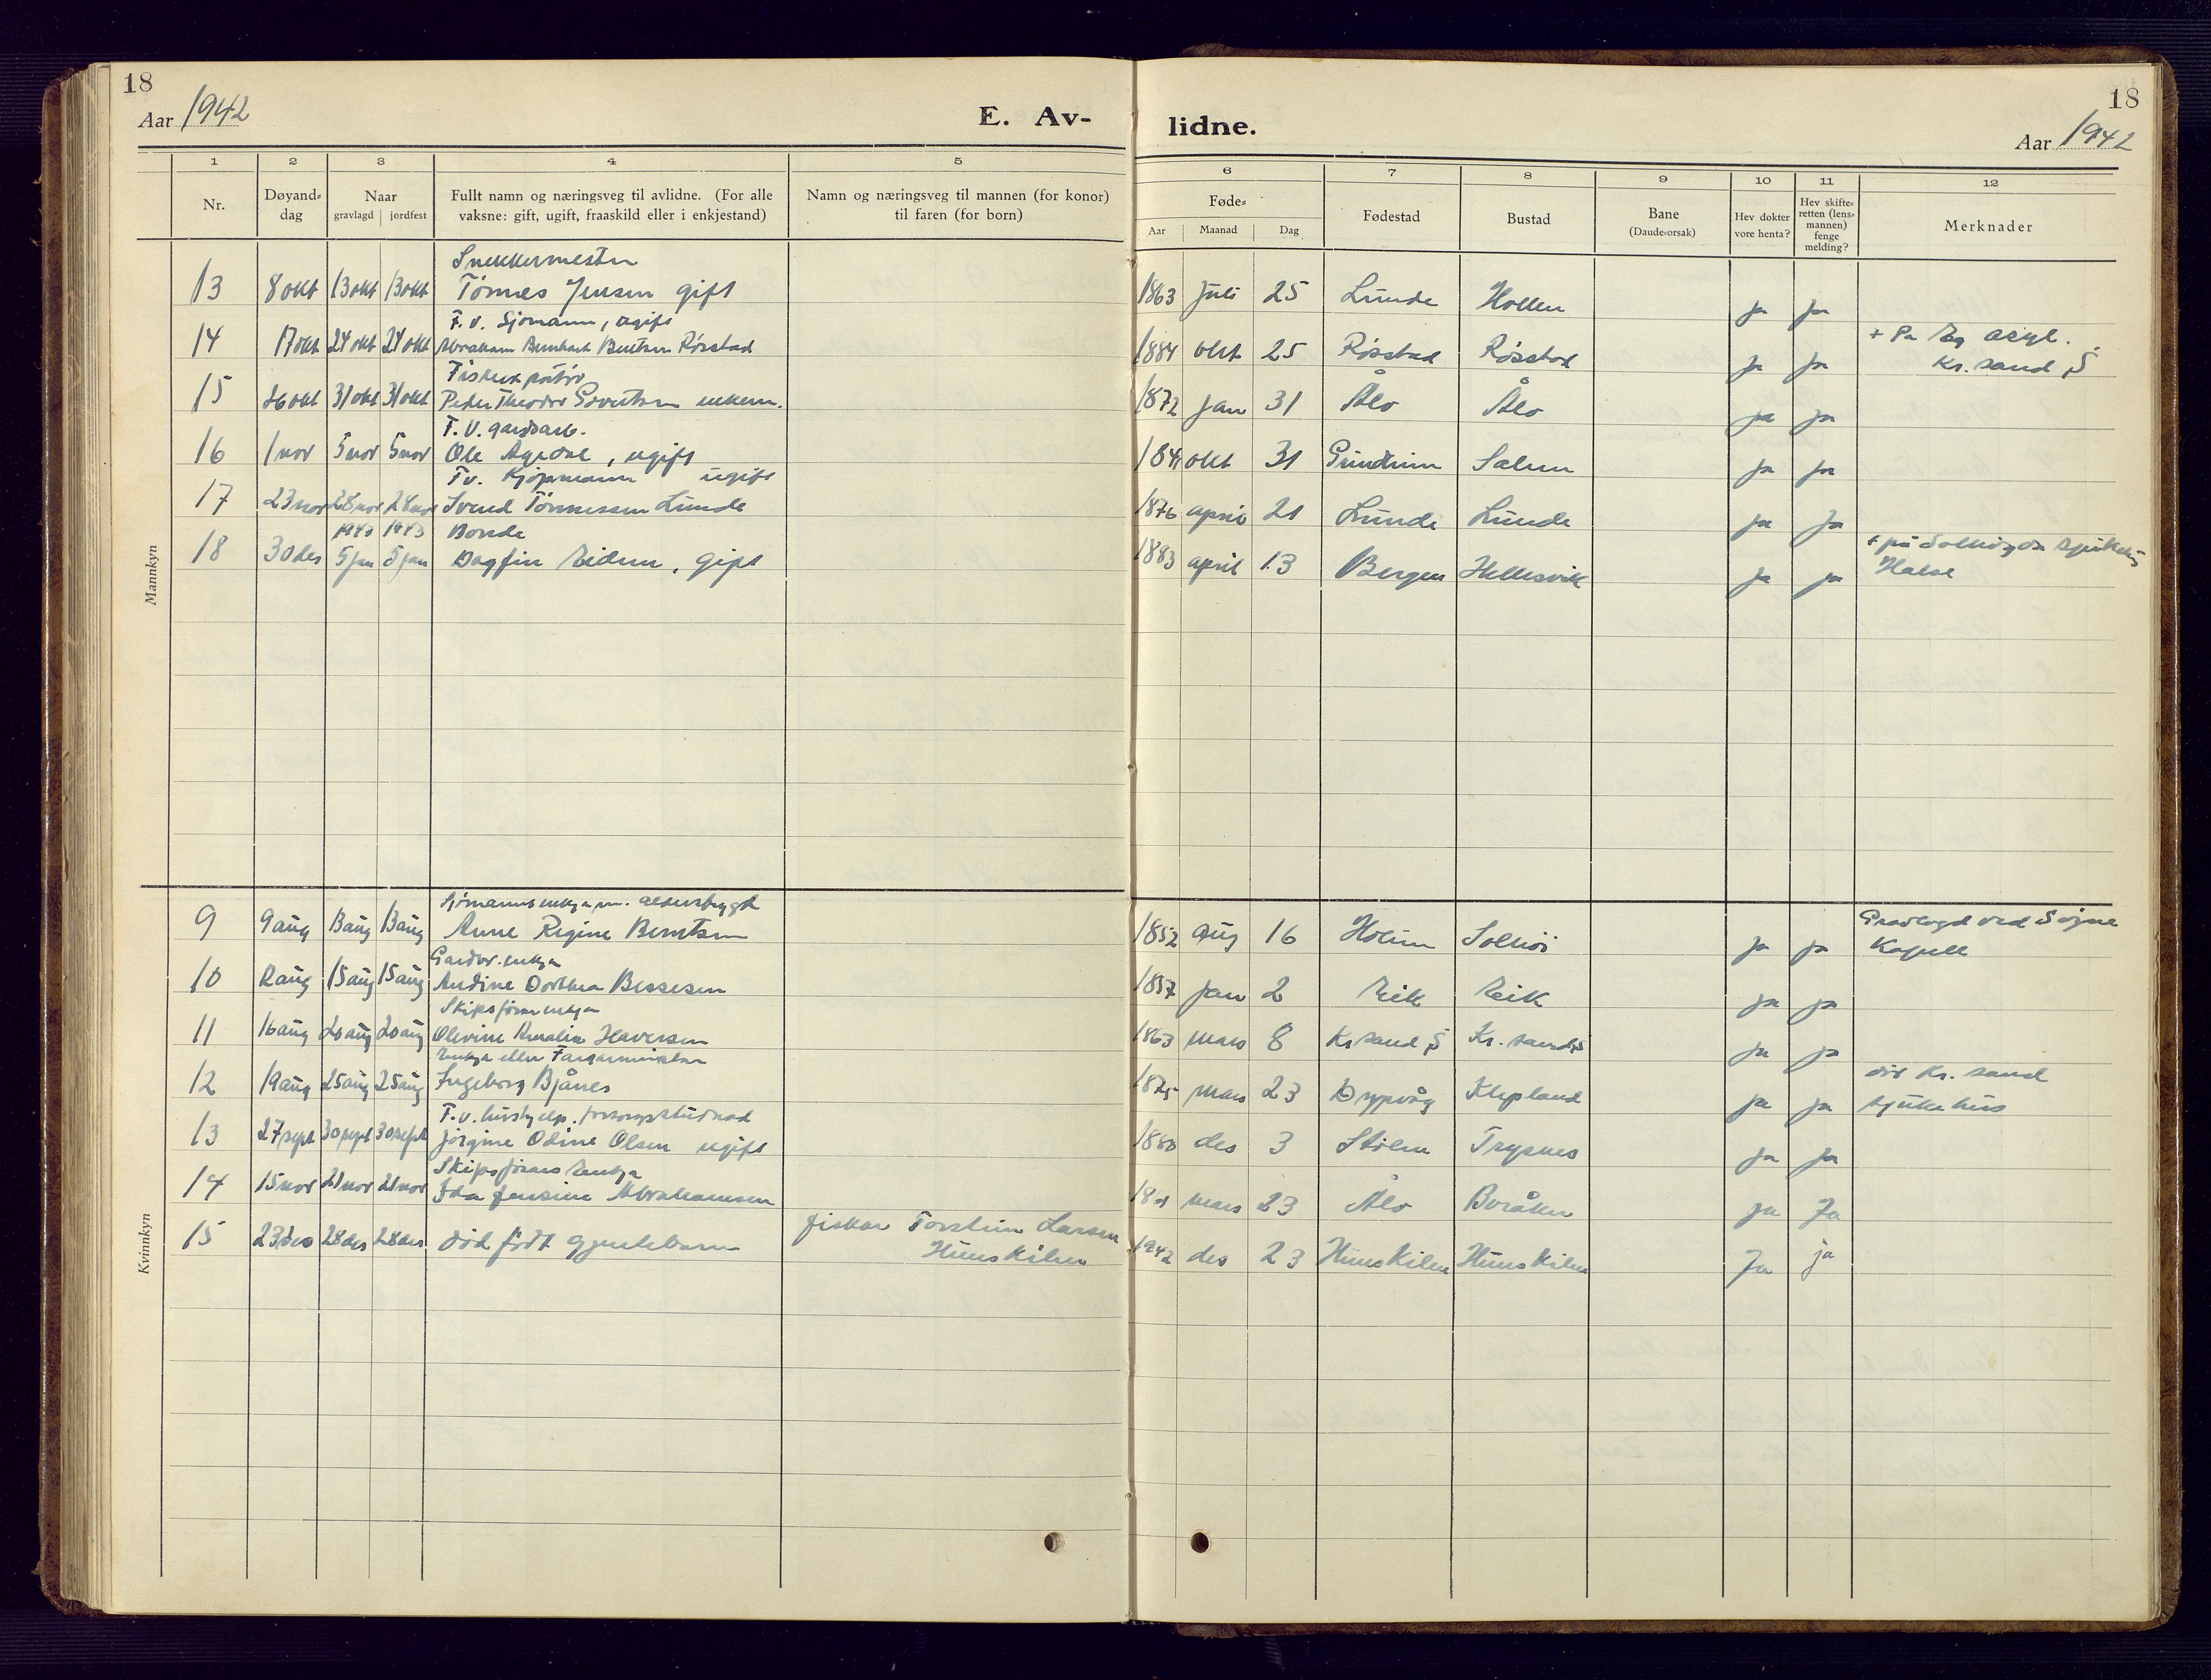 18
Aar 1942
E. Av-
lidne.
18
Aar 1942
1 2 3 4 5
Nr.
Døyand-dag
Naar
gravlagd | jordfest
Fullt namn og næringsveg til avlidne. (For alle
vaksne: gift, ugift, fraaskild eller i enkjestand)
Namn og næringsveg til mannen (for konor)
til faren (for born)
6 7 8 9 10 11 12
Føde-
Aar Maanad Dag
Fødestad
Bustad
Bane
(Daude-orsak)
Hev dokter
vore henta?
Hev skifte-
retten (lens-
mannen)
fenge
melding?
Merknader
Mannkyn
Snekkermester
13 8 okt 13 okt 13 okt Tønnes Jensen gift 1863 juli 25 Lunde Hollen ja ja
F. v. Sjømann, ugift
14 17 okt 24 okt 24 okt Abraham Bernhard Berntsen Røsstad 1884 okt 25 Røsstad Røsstad ja ja + På Eg asyl.
Kr. sand S
15 26 okt 31 okt 31 okt Peder Theodor enkem. 1872 jan 31 Ålo Ålo ja ja
F. v. gardsarb.
16 1 nov 5 nov 5 nov Ole Agedal, ugift okt 31 Grindheim ja ja
Fv. Kjøpmann ugift
17 23 nov 28 nov 28 nov Svend Tønnessen Lunde 1876 april 21 Lunde Lunde ja ja
1943 1943 Bonde
18 30 des 5 jan 5 jan Dagfin Eidem, gift 1883 april 13 Bergen Hellesvik ja ja + på Solhøgda sjukehj
Halse
Kvinnkyn
Sjømanns enkja, m. alderstrygd
9 9 aug 13 aug 13 aug Anne Regine Berntsen 1852 aug 16 Holum Solhøi ja ja Gravlagd ved Søgne
Kapell
Gardbr. enkja
10 12 aug 15 aug 15 aug Andine Dorthea Bessesen 1857 jan 2 Eik Eik ja ja
Skipsfører enkja
11 16 aug 20 aug 20 aug Olevine Amalia Haversen 1863 mars 8 Kr sand S Kr. sand S ja ja
Enkja etter
12 19 aug 25 aug 25 aug Ingeborg Bjånes mars 23 Dypvåg Klepland ja ja død Kr. sand
sjukehus
F. v. hushjelp. forsorgsstudnad
13 27 sept 30 sept 30 sept Jørgine Odine Olsen ugift 1880 des 3 Stølen Trysnes ja ja
Skipsførars Enkja
14 15 nov 21 nov 21 nov Ida Jensine Abrahamsen mars 23 Ålo Boråken ja Ja
15 23 des 28 des 28 des død født gjentebarn fiskar Torstein Larsen 1942 des 23 Humskilen Humskilen Ja ja
Humskilen